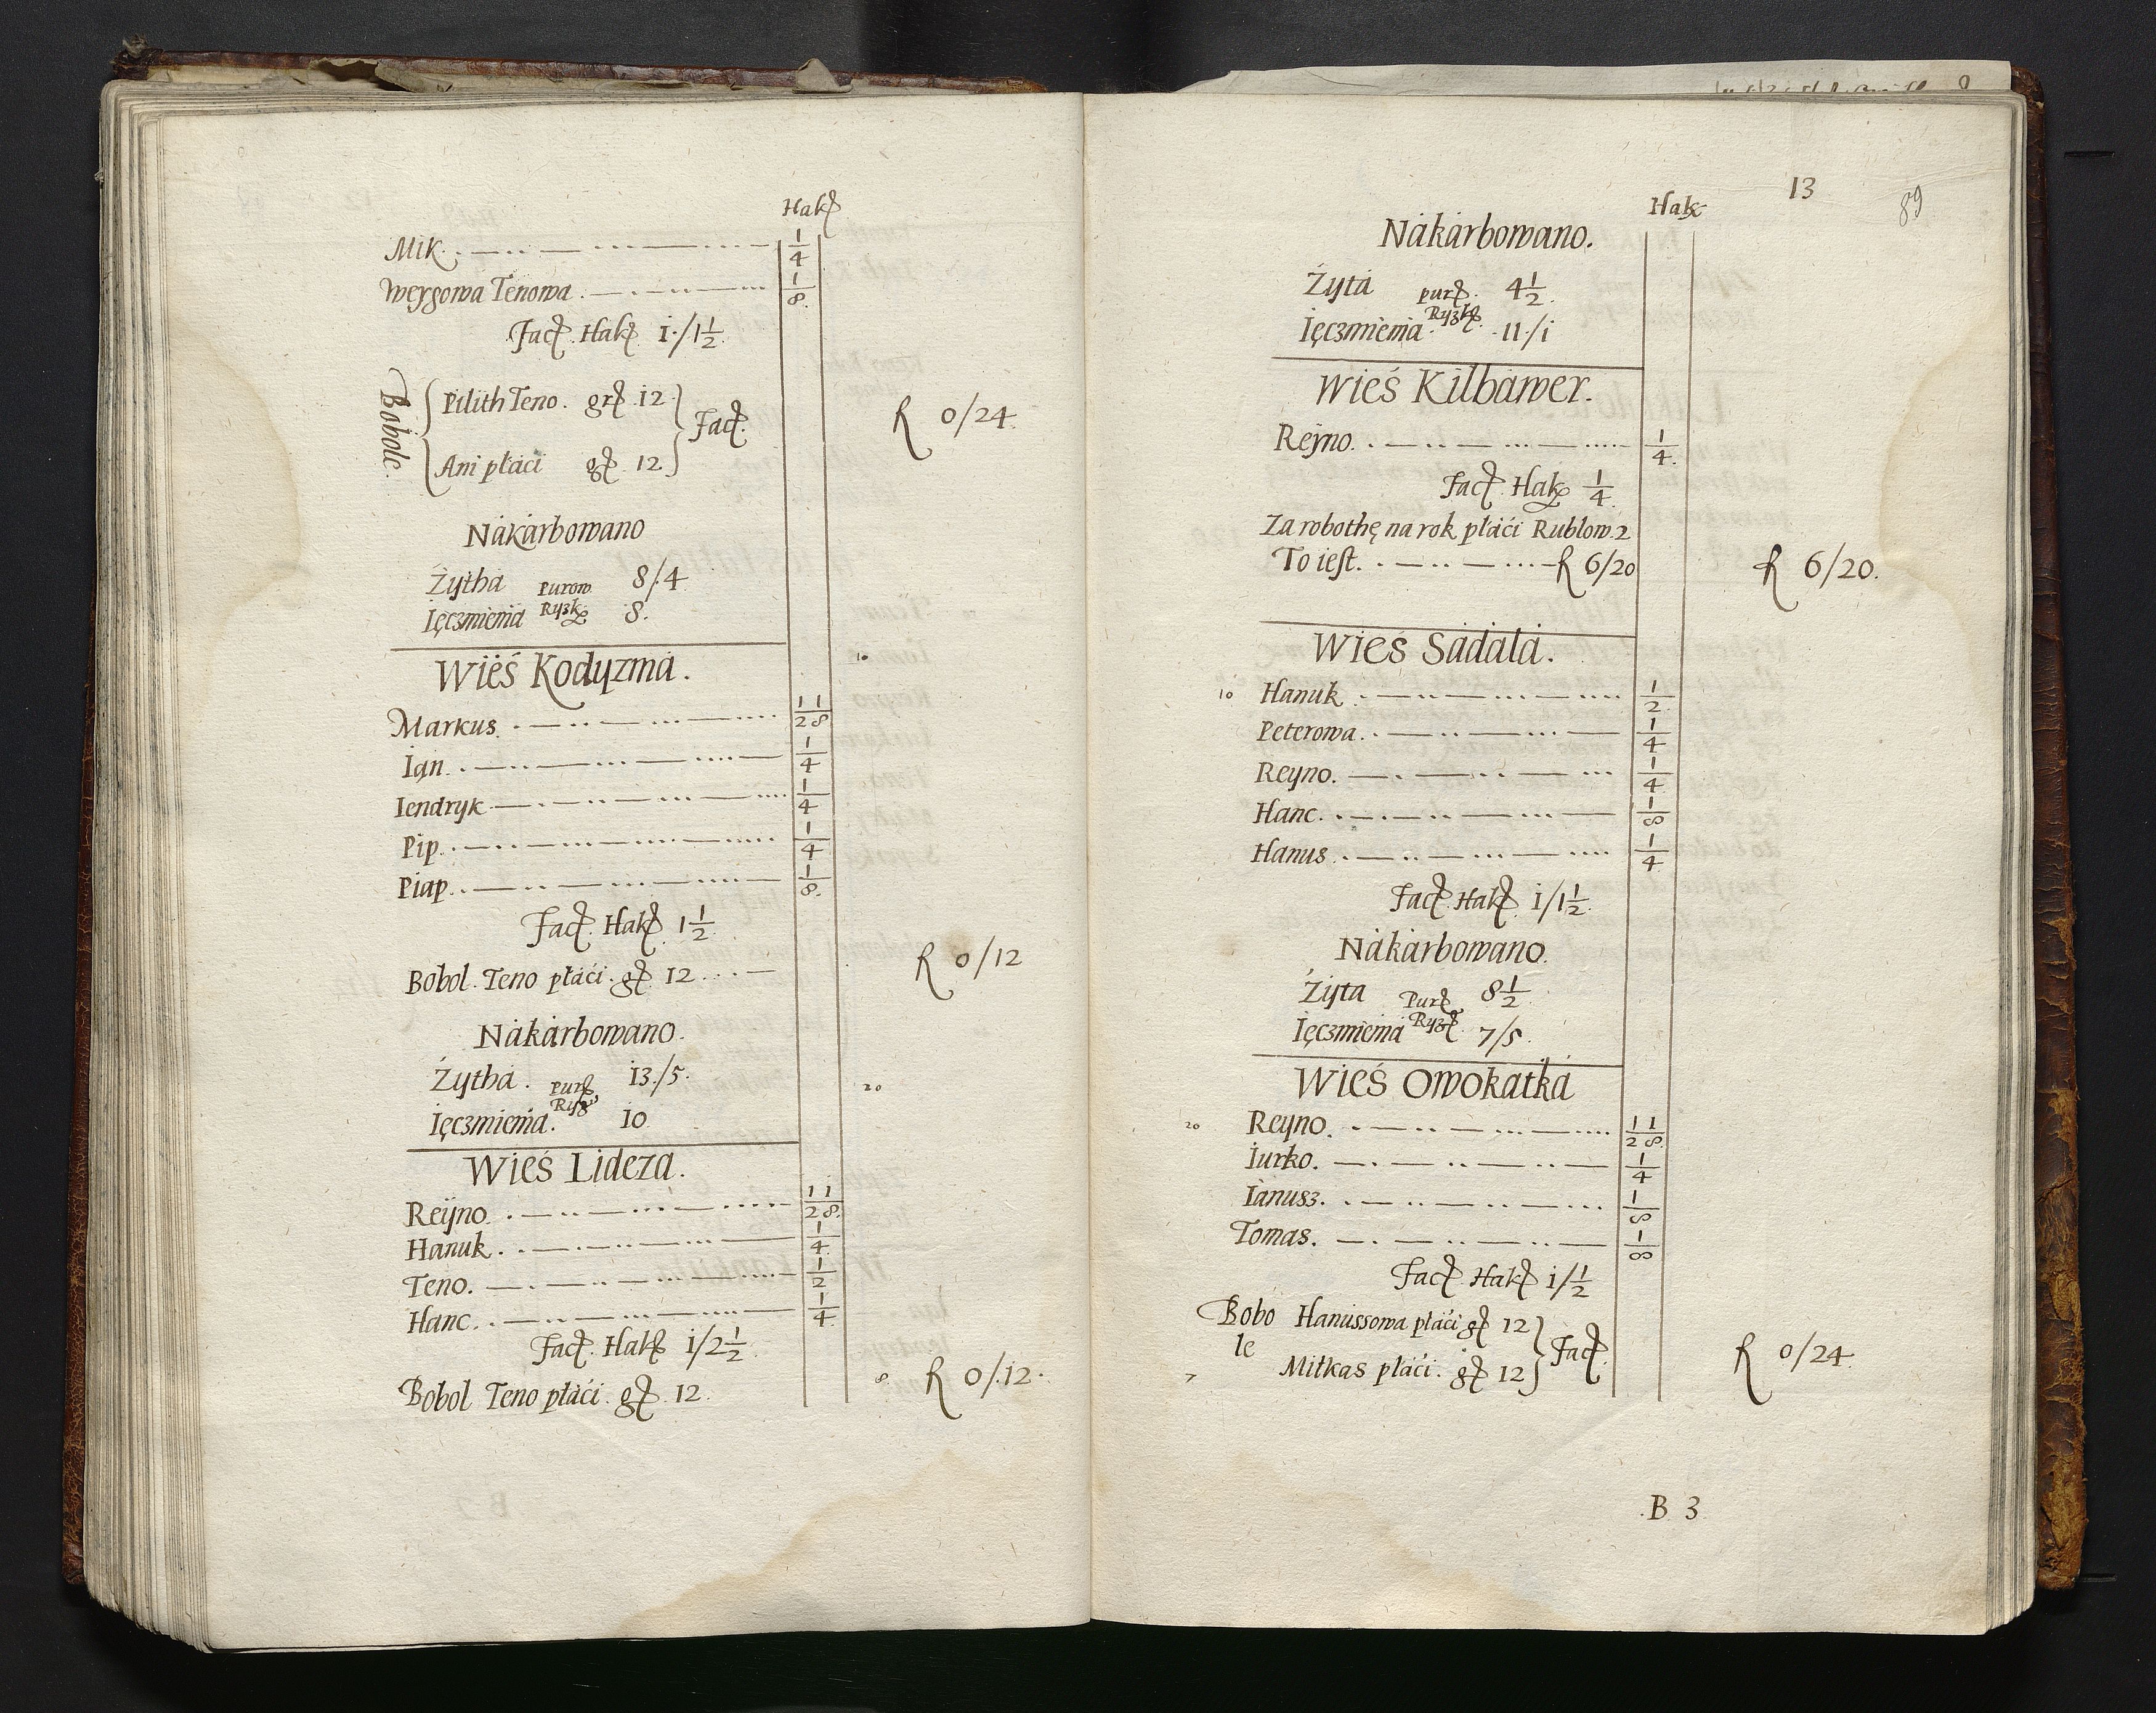 Hakꝭ
Mik. 1/4
Weysowa Tenowa. 1/8.
Facꝭ. Hakꝭ 1./1 1/2
Bobole
Pilith Teno. grꝭ 12
Ani płáci gꝭ 12.
Facꝭ.
ƒ 0/24.
Nákárbowano
Żythá Purow 8/.4
Ięczmieniá Ryzkꝭ 8.
Wieś Kodyzmá.
10
Markus. 1/2 1/8
Ian. 1/4
Iendryk 1/4
Pip. 1/4
Piap. 1/8.
Facꝭ. Hakꝭ. 1 1/2
Bobol. Teno płáći. gꝭ. 12
ƒ 0/12
Nákárbowano.
Żythá. Purꝭ 13./5.
20
Ięczmieniá. Ryzꝭ 10
Wieś Lidezá.
Reyno. 1/2 1/8.
Hanuk. 1/4.
Teno. 1/2
Hanc. 1/4.
Facꝭ. Hakꝭ 1/2 1/2.
Bobol Teno płáći. gꝭ. 12.
8. ƒ 0/.12.
13
89
Hakꝭ
Nákárbowano.
Żytá purꝭ. 4 1/2.
Ięczmieniá. Ryzkꝭ. 11/1
Wieś Kilbáwer.
Reyno. 1/4.
Facꝭ. Hakꝭ 1/4.
Za robothę na rok płáći Rublow. 2
To iest. ƒ 6/20
ƒ 6/20.
Wieś Sádálá.
10 Hanuk. 1/2.
Peterowa. 1/4
Reyno. 1/4
Hanc. 1/8
Hanus. 1/4
Facꝭ. Hakꝭ. 1/1 1/2.
Nákárbowano.
Żytá Purꝭ 8 1/2.
Ięczmieniá Ryzꝭ. 7/5.
Wieś Owokatká
20 Reyno. 1/2 1/8.
Iurko. 1/4
Iánusz. 1/8
Tomas. 1/8
Facꝭ. Hakꝭ 1/1/2
Bobo Hanussowa płáći gꝭ 12
le
7 Mitkas płáći. gꝭ 12
Facꝭ.
ƒ 0/24.
B 3